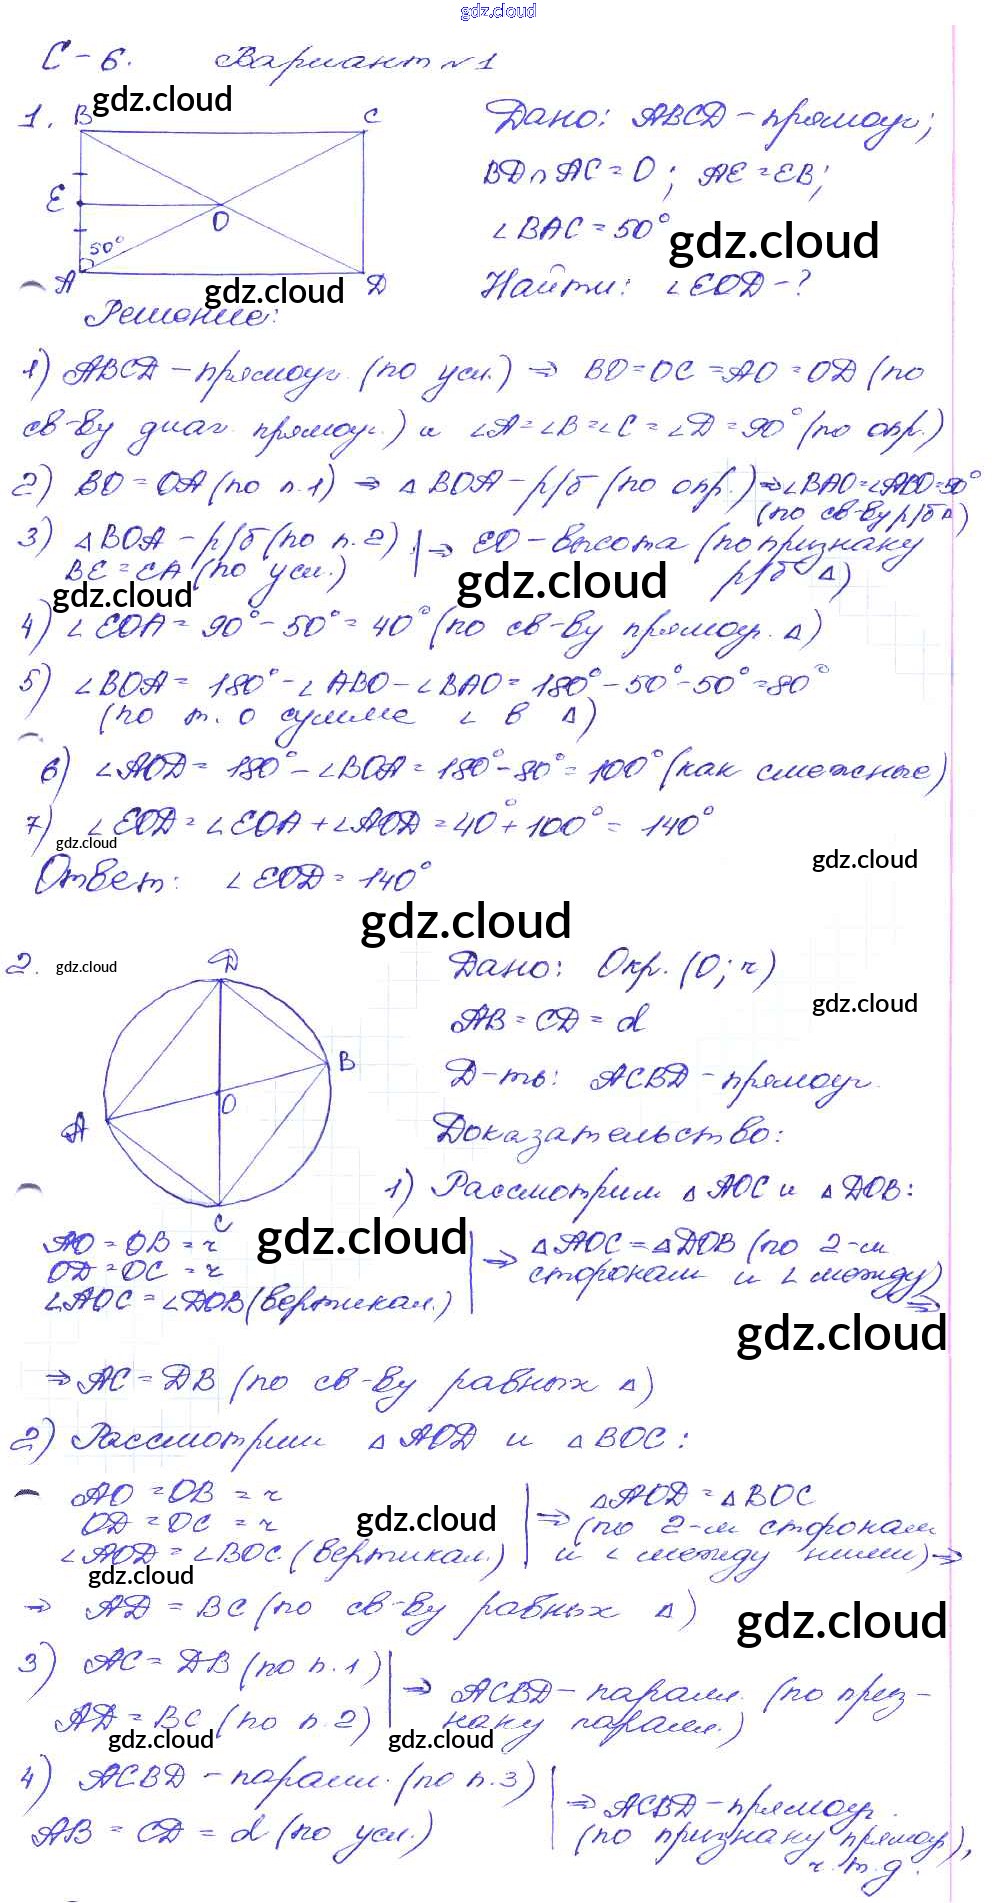 gdz.cloud
С-6. Вариант №1
gdz.cloud
1. B C
E O
50°
A D
Дано: ABCD - прямоуг;
BD∩AC=O; AE=EB;
∠BAC=50°
gdz.cloud
Найти: ∠EOD-?
gdz.cloud
Решение:
1) ABCD - прямоуг. (по усл.) ⇒ BO=OC=AO=OD (по
св-ву диаг. прямоуг.) и ∠A=∠B=∠C=∠D=90° (по опр.)
2) BO=OA (по п.1) ⇒ △BOA - р/б (по опр.) ⇒ ∠BAO=∠ABO=50°
(по св-ву р/б △)
3) △BOA - р/б (по п.2) | ⇒ EO - высота (по признаку
BE=EA (по усл.) р/б △)
gdz.cloud
gdz.cloud
4) ∠EOA=90°-50°=40° (по св-ву прямоуг. △)
5) ∠BOA=180°-∠ABO-∠BAO=180°-50°-50°=80°
(по т. о сумме ∠ в △)
6) ∠AOD=180°-∠BOA=180°-80°=100° (как смежные)
7) ∠EOD=∠EOA+∠AOD=40°+100°=140°
gdz.cloud
gdz.cloud
Ответ: ∠EOD=140°
gdz.cloud
2. gdz.cloud
D
B
O
A
C
Дано: Окр. (O; r)
gdz.cloud
AB=CD=d
Д-ть: ACBD - прямоуг.
Доказательство:
1) Рассмотрим △AOC и △DOB:
gdz.cloud
AO=OB=r | ⇒ △AOC=△DOB (по 2-м
OD=OC=r сторонам и ∠ между)
∠AOC=∠DOB (вертикал.) ⇒
gdz.cloud
⇒ AC=DB (по св-ву равных △)
2) Рассмотрим △AOD и △BOC:
AO=OB=r | ⇒ △AOD=△BOC
OD=OC=r (по 2-м сторонам
gdz.cloud
∠AOD=∠BOC (вертикал.) и ∠ между ними) ⇒
gdz.cloud
⇒ AD=BC (по св-ву равных △)
gdz.cloud
3) AC=DB (по п.1) | ⇒ ACBD - паралл. (по приз-
AD=BC (по п.2) наку паралл.)
gdz.cloud gdz.cloud
4) ACBD - паралл. (по п.3) | ⇒ ACBD - прямоуг.
AB=CD=d (по усл.) (по признаку прямоуг.),
ч.т.д.